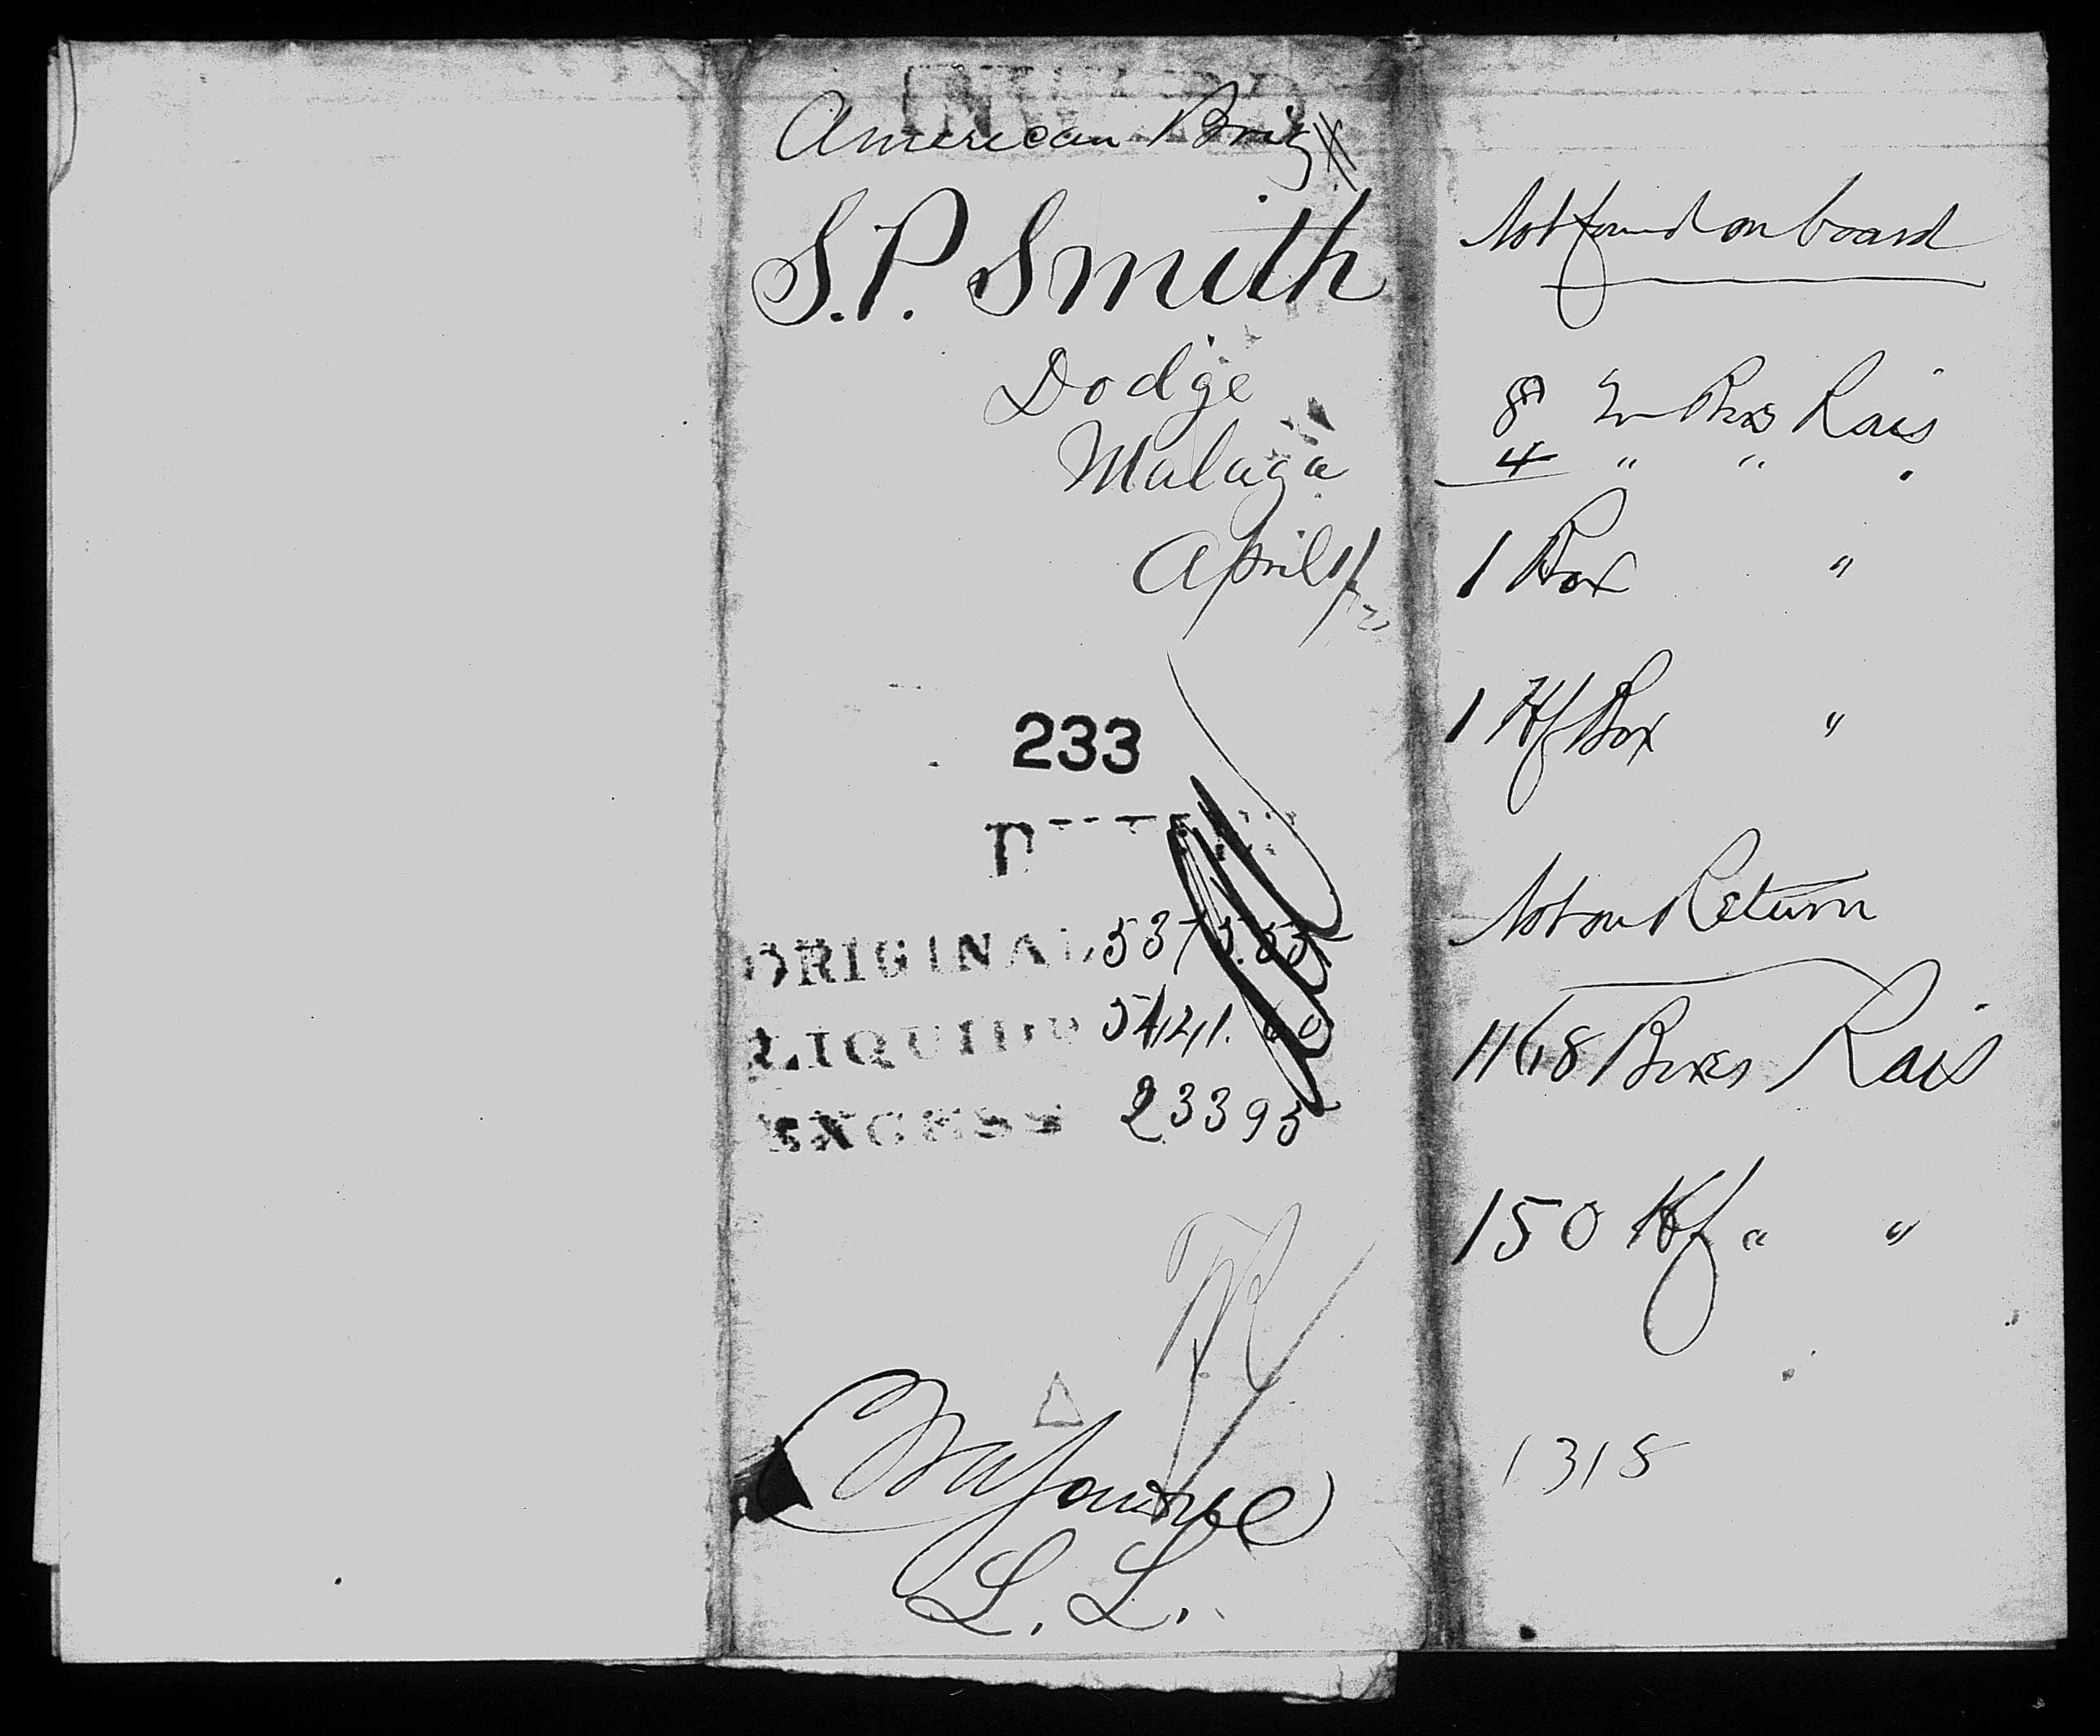 American Brig
S.P. Smith
Dodge
Malaga
April
233
ORIGINAL 5373.55
LIQUID 5141.60
EXCESS 233 95
L. L.
Not found on board
8 Boxes Rais
4 " " "
1 Box "
1 Hf Box "
Not on Return
1168 Boxes Rais
150 Hf " "
1318